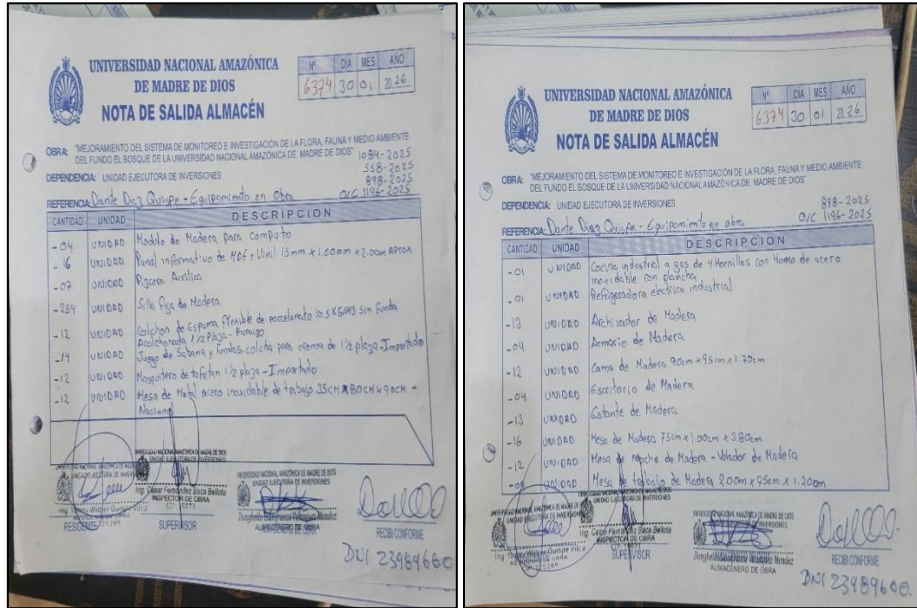 UNIVERSIDAD NACIONAL AMAZÓNICA
DE MADRE DE DIOS
NOTA DE SALIDA ALMACÉN
Nº DIA MES AÑO
6374 30 01 2026
OBRA: "MEJORAMIENTO DEL SISTEMA DE MONITOREO E INVESTIGACIÓN DE LA FLORA, FAUNA Y MEDIO AMBIENTE
DEL FUNDO EL BOSQUE DE LA UNIVERSIDAD NACIONAL AMAZÓNICA DE MADRE DE DIOS"
1084-2025
558-2025
DEPENDENCIA: UNIDAD EJECUTORA DE INVERSIONES
898-2025
REFERENCIA: Dante Diaz Quispe - Equipamiento en obra O/C 1196-2025
CANTIDAD UNIDAD DESCRIPCION
-04 UNIDAD Modulo de Madera para computo
-16 UNIDAD Panel informativo de MDF + Vinil 15mm x 1.00mm x 2.00m Aprox
-07 UNIDAD Pizarra Acrilica
-254 UNIDAD Silla fija de Madera
-12 UNIDAD Colchon de Espuma flexible de porcelanato 10.5 KG/M3 sin funda
Acolchonada 1 1/2 Plaza - Paraiso
-14 UNIDAD Juego de Sabana y fundas, colcha para cama de 1 1/2 plaza - Importado
-12 UNIDAD Mosquitero de tafetan 1 1/2 plaza - Importado
-12 UNIDAD Mesa de Metal acero inoxidable de trabajo 35CM x 80CM x 90CM -
Nacional
UNIVERSIDAD NACIONAL AMAZÓNICA DE MADRE DE DIOS
UNIDAD EJECUTORA DE INVERSIONES
Ing. César Fernández Baca Bellota
INSPECTOR DE OBRA
RESIDENTE
SUPERVISOR
ALMACENERO DE OBRA
RECIBI CONFORME
DNI 23989660
UNIVERSIDAD NACIONAL AMAZÓNICA
DE MADRE DE DIOS
NOTA DE SALIDA ALMACÉN
Nº DIA MES AÑO
6374 30 01 2026
OBRA: "MEJORAMIENTO DEL SISTEMA DE MONITOREO E INVESTIGACIÓN DE LA FLORA, FAUNA Y MEDIO AMBIENTE
DEL FUNDO EL BOSQUE DE LA UNIVERSIDAD NACIONAL AMAZÓNICA DE MADRE DE DIOS"
DEPENDENCIA: UNIDAD EJECUTORA DE INVERSIONES
898-2025
REFERENCIA: Dante Diaz Quispe - Equipamiento en obra O/C 1196-2025
CANTIDAD UNIDAD DESCRIPCION
-01 UNIDAD Cocina industrial a gas de 4 Hornillas con Horno de acero
inoxidable con plancha
-01 UNIDAD Refrigeradora electrica industrial
-13 UNIDAD Archivador de Madera
-04 UNIDAD Armario de Madera
-12 UNIDAD Cama de Madera 90cm x 95cm x 1.70cm
-04 UNIDAD Escritorio de Madera
-13 UNIDAD Estante de Madera
-16 UNIDAD Mesa de Madera 75cm x 1.00cm x 3.80cm
-12 UNIDAD Mesa de noche de Madera - Velador de Madera
UNIDAD Mesa de trabajo de Madera 2.00m x 95cm x 1.20cm
UNIDAD EJECUTORA DE INVERSIONES
Ing. César Fernández Baca Bellota
INSPECTOR DE OBRA
SUPERVISOR
ALMACENERO DE OBRA
RECIBI CONFORME
DNI 23989660.